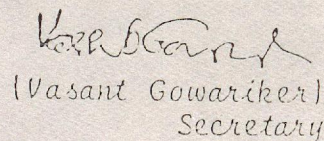 (Vasant Gowariker)
Secretary